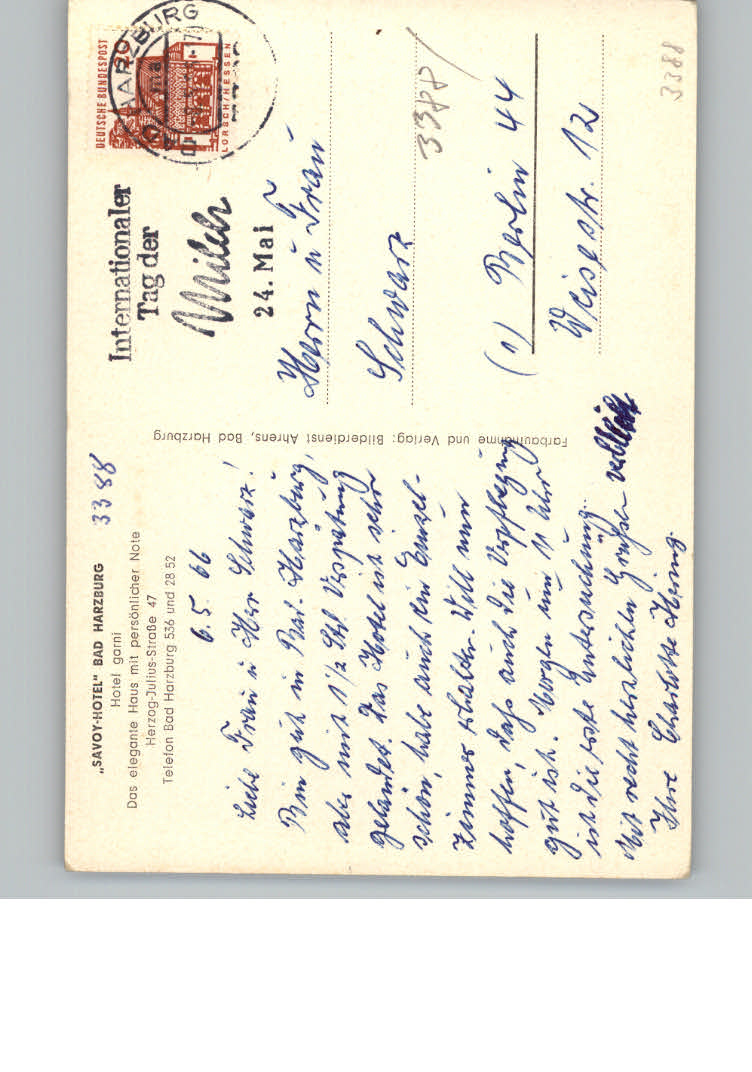 „SAVOY-HOTEL" BAD HARZBURG
Hotel garni
Das elegante Haus mit persönlicher Note
Herzog-Julius-Straße 47
Telefon Bad Harzburg 536 und 28 52
3388
6.5.66
Liebe Frau u. Herr Schwarz!
Bin gut in Bad-Harzburg,
aber mit 1½ Std Verspätung
gelandet. Das Hotel ist sehr
schön, habe auch ein Einzel-
zimmer erhalten. Will nun
hoffen, daß auch die Verpflegung
gut ist. Morgen um 11 Uhr
ist die erste Untersuchung.
Mit recht herzlichen Grüßen
Ihre Charlotte
Farbaufnahme und Verlag: Bilderdienst Ahrens, Bad Harzburg
DEUTSCHE BUNDESPOST
LORSCH/HESSEN
HARZBURG
Internationaler
Tag der
Milch
24. Mai
Herrn u Frau
Schwarz
3388
(1) Berlin 44
Weisestr. 12
3388